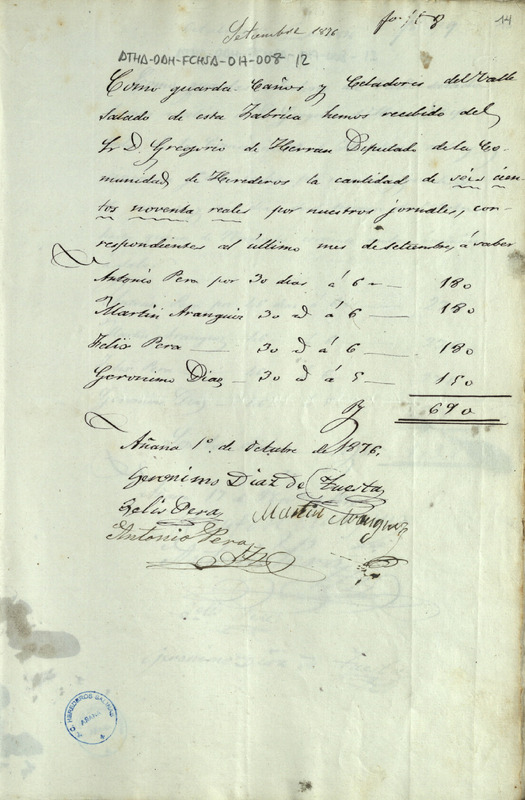 Setiembre 1876
fo. 158
14
ATHA-DAH-FCHSA-DH-008 12
Como guarda-Caños y Celadores del Valle
Salado de esta Fabrica hemos recibido del
Sr D Gregorio de Herran Diputado de la Co-
munidad de Herederos la cantidad de seis cien-
tos noventa reales por nuestros jornales, cor-
respondientes al último mes de setiembre, á saber
Antonio Pera por 30 dias á 6 — 180
Martin Aranguiz 30 id á 6 — 180
Felis Pera — 30 id á 6 — 180
Geronimo Diaz — 30 id á 5 — 150
690
Añana 1º de Octubre de 1876.
Geronimo Diaz de Tuesta
Felis Pera Martin Aranguiz
Antonio Pera
HEREDEROS SALINAS
AÑANA